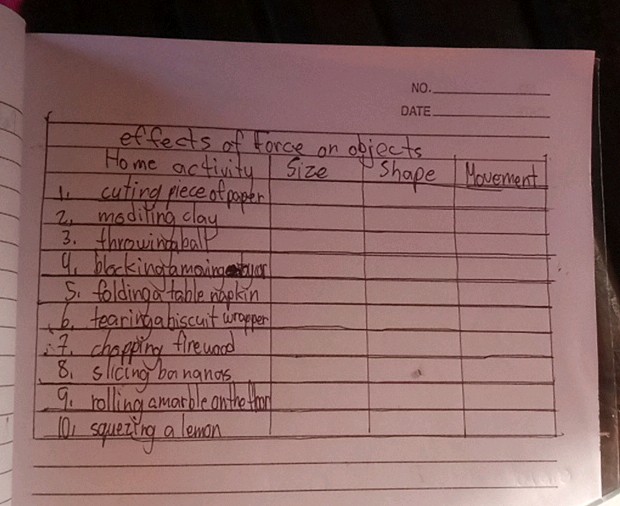 NO.
DATE
effects of Force on objects
Home activity Size Shape Movement
1. cuting piece of paper
2. modiling clay
3. throwing a ball
4. blocking a moving
5. folding a table napkin
6. tearing a biscuit wrapper
7. chopping firewood
8. slicing bananas
9. rolling a marble on the floor
10. squezing a lemon